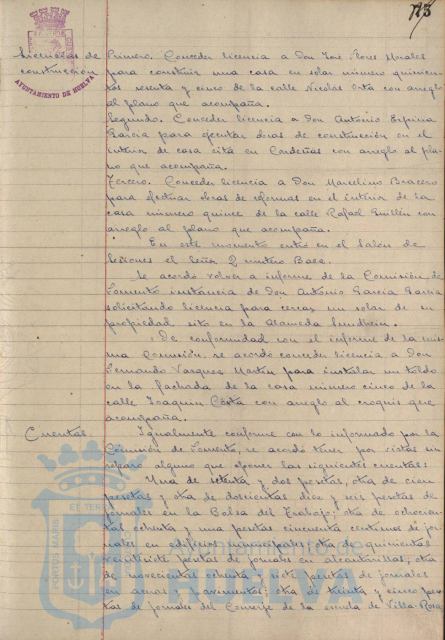 113
AYUNTAMIENTO DE HUELVA
Licencias de construcción
Primero. Conceder licencia a Don José Flores Morales
para construir una casa en solar número quinien-
tos sesenta y cinco de la calle Nicolas Orta con arreglo
al plano que acompaña.
Segundo. Conceder licencia a Don Antonio Espina
Garcia para ejecutar obras de construcción en el
interior de casa sita en Cardeñas con arreglo al pla-
no que acompaña.
Tercero. Conceder licencia a Don Marcelino Bracero
para efectuar obras de reformas en el interior de la
casa número quince de la calle Rafael Guillén con
arreglo al plano que acompaña.
En este momento entró en el Salón de
Sesiones el Señor Baez.
Se acordó volver a informe de la Comisión de
Fomento instancia de Don Antonio Garcia Garcia
solicitando licencia para cercar un solar de su
propiedad sito en la Alameda Sundheim.
De conformidad con el informe de la mis-
ma Comisión, se acordó conceder licencia a Don
Fernando Vazquez Martin para instalar un toldo
en la fachada de la casa número cinco de la
calle Joaquin Costa con arreglo al croquis que
acompaña.
Cuentas
Igualmente conforme con lo informado por la
Comisión de Fomento, se acordó tener por vistas sin
reparo alguno que oponer las siguientes cuentas:
Una de setenta y dos pesetas, otra de cien
pesetas y otra de doscientas diez y seis pesetas de
jornales en la Bolsa del Trabajo; otra de ochocien-
tas ochenta y una pesetas cincuenta centimos de jor-
nales en edificios municipales; otra de quinientas
veintisiete pesetas de jornales en alcantarillas; otra
de novecientas ochenta y siete pesetas de jornales
en aceras y pavimentos; otra de treinta y cinco pese-
tas de jornales del Conserje de la escuela de Villa-Rosa
Ayuntamiento de
HUELVA